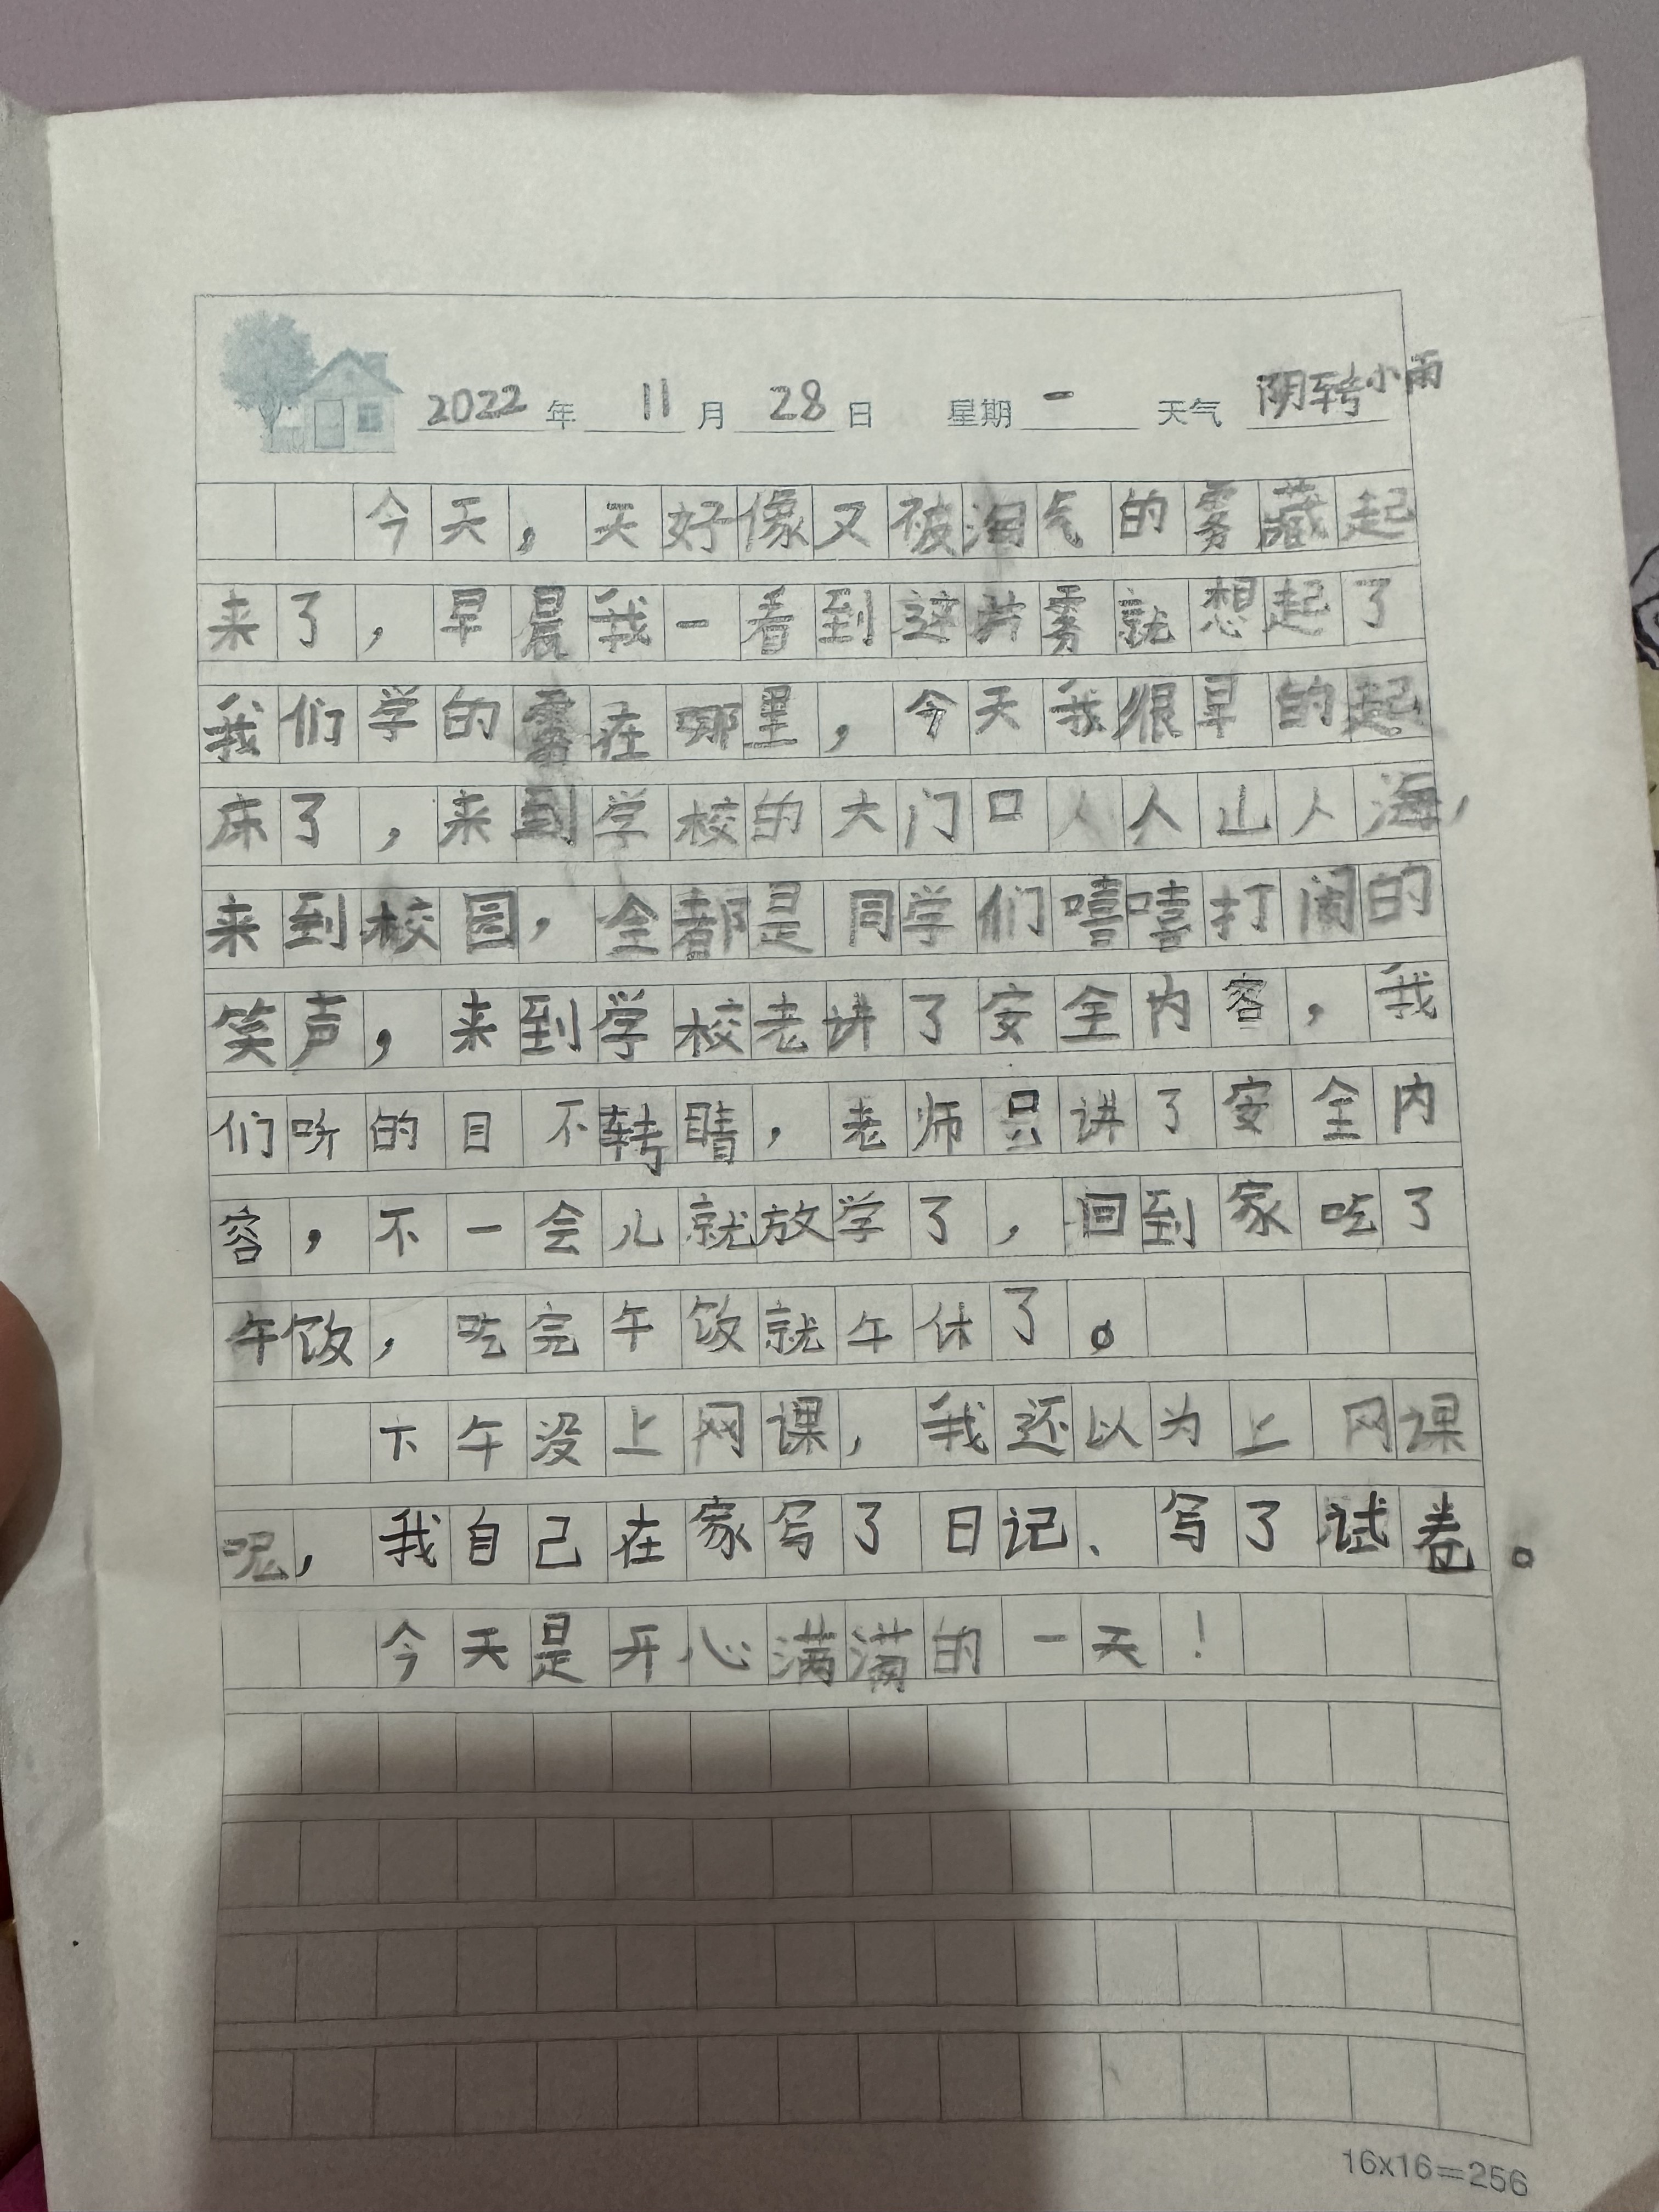 2022年 11月 28日 星期一 天气 阴转小雨
今天，天好像又被淘气的雾藏起
来了，早晨我一看到这片雾就想起了
我们学的雾在哪里，今天我很早的起
床了，来到学校的大门口人人山人海，
来到校园，全都是同学们嘻嘻打闹的
笑声，来到学校老讲了安全内容，我
们听的目不转睛，老师只讲了安全内
容，不一会儿就放学了，回到家吃了
午饭，吃完午饭就午休了。
下午没上网课，我还以为上网课
呢，我自己在家写了日记、写了试卷。
今天是开心满满的一天！
16x16=256